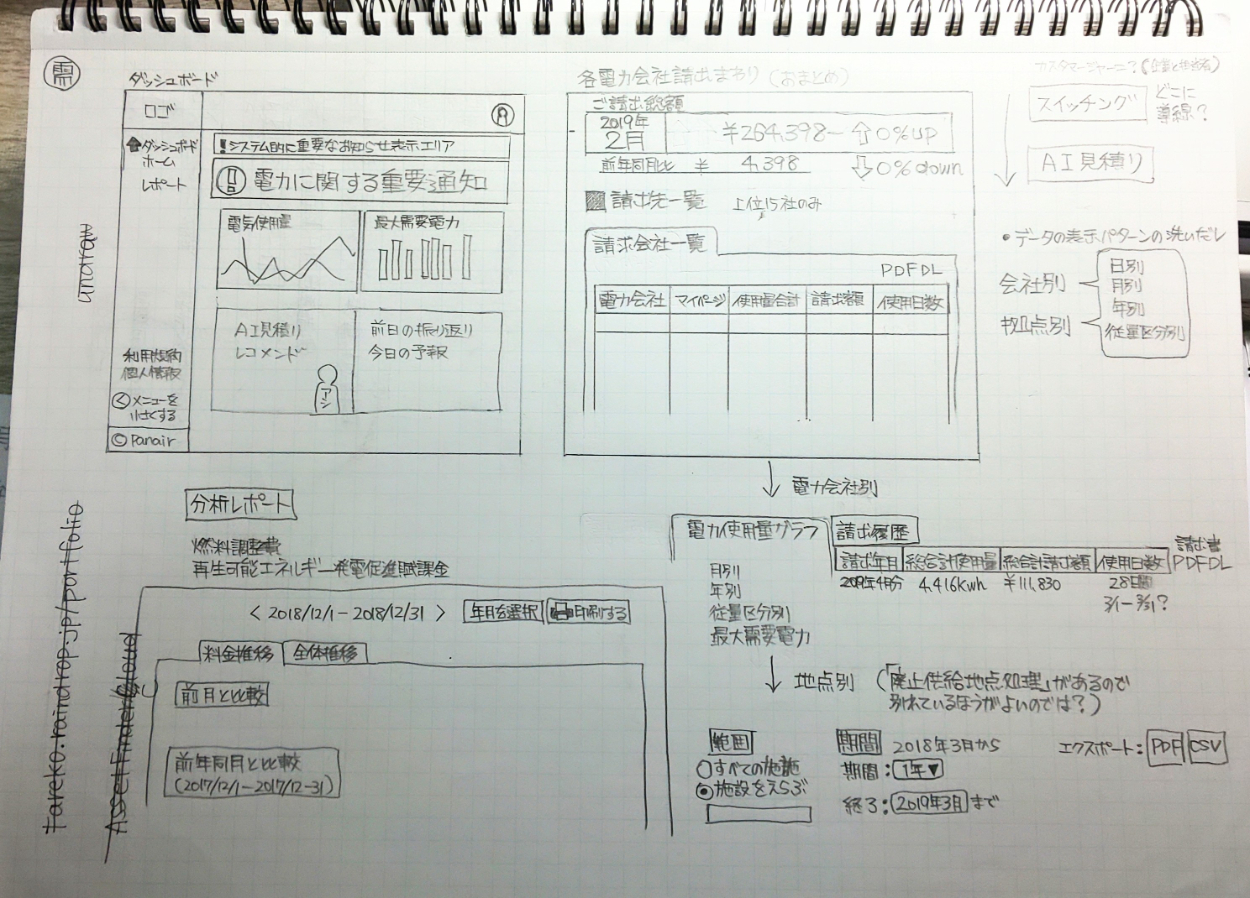 需
ダッシュボード
ロゴ
ダッシュボード
ホーム
レポート
!システム的に重要なお知らせ表示エリア
電力に関する重要通知
電気使用量
最大需要電力
AI見積り
レコメンド
アシ
前日の振り返り
今日の予報
利用規約
個人情報
<メニューを
小さくする
© Panair
undraw
各電力会社請求まわり(おまとめ)
ご請求総額
2019年
2月
¥264,398- ⇧0%up
前年同月比 ¥ 4,398
⇩0%down
請求先一覧 上位15社のみ
請求会社一覧
PDFDL
電力会社 マイページ 使用量合計 請求額 使用日数
カスタマージャーニー?(企業と担当者)
スイッチング
どこに
導線?
AI見積り
・データの表示パターンの洗いだし
会社別
拠点別
日別
月別
年別
従量区分別
↓ 電力会社別
電力使用量グラフ
請求履歴
請求年月 総合計使用量 総合計請求額 使用日数
請求書
PDFDL
2019年4月分 4,416kwh ¥111,830 28日間
3/1-3/31?
月別
年別
従量区分別
最大需要電力
↓ 地点別 (「廃止供給地点処理」があるので
別れているほうがよいのでは?)
範囲
すべての施設
施設をえらぶ
期間 2018年3月から
期間:1年▼
終了:2019年3月まで
エクスポート:PDF CSV
分析レポート
燃料調整費
再生可能エネルギー発電促進賦課金
< 2018/12/1-2018/12/31 >
年月を選択
印刷する
料金推移
全体推移
前月と比較
前年同月と比較
(2017/12/1-2017/12-31)
tareko.raindrop.jp/portfolio
AssetFinderCloud